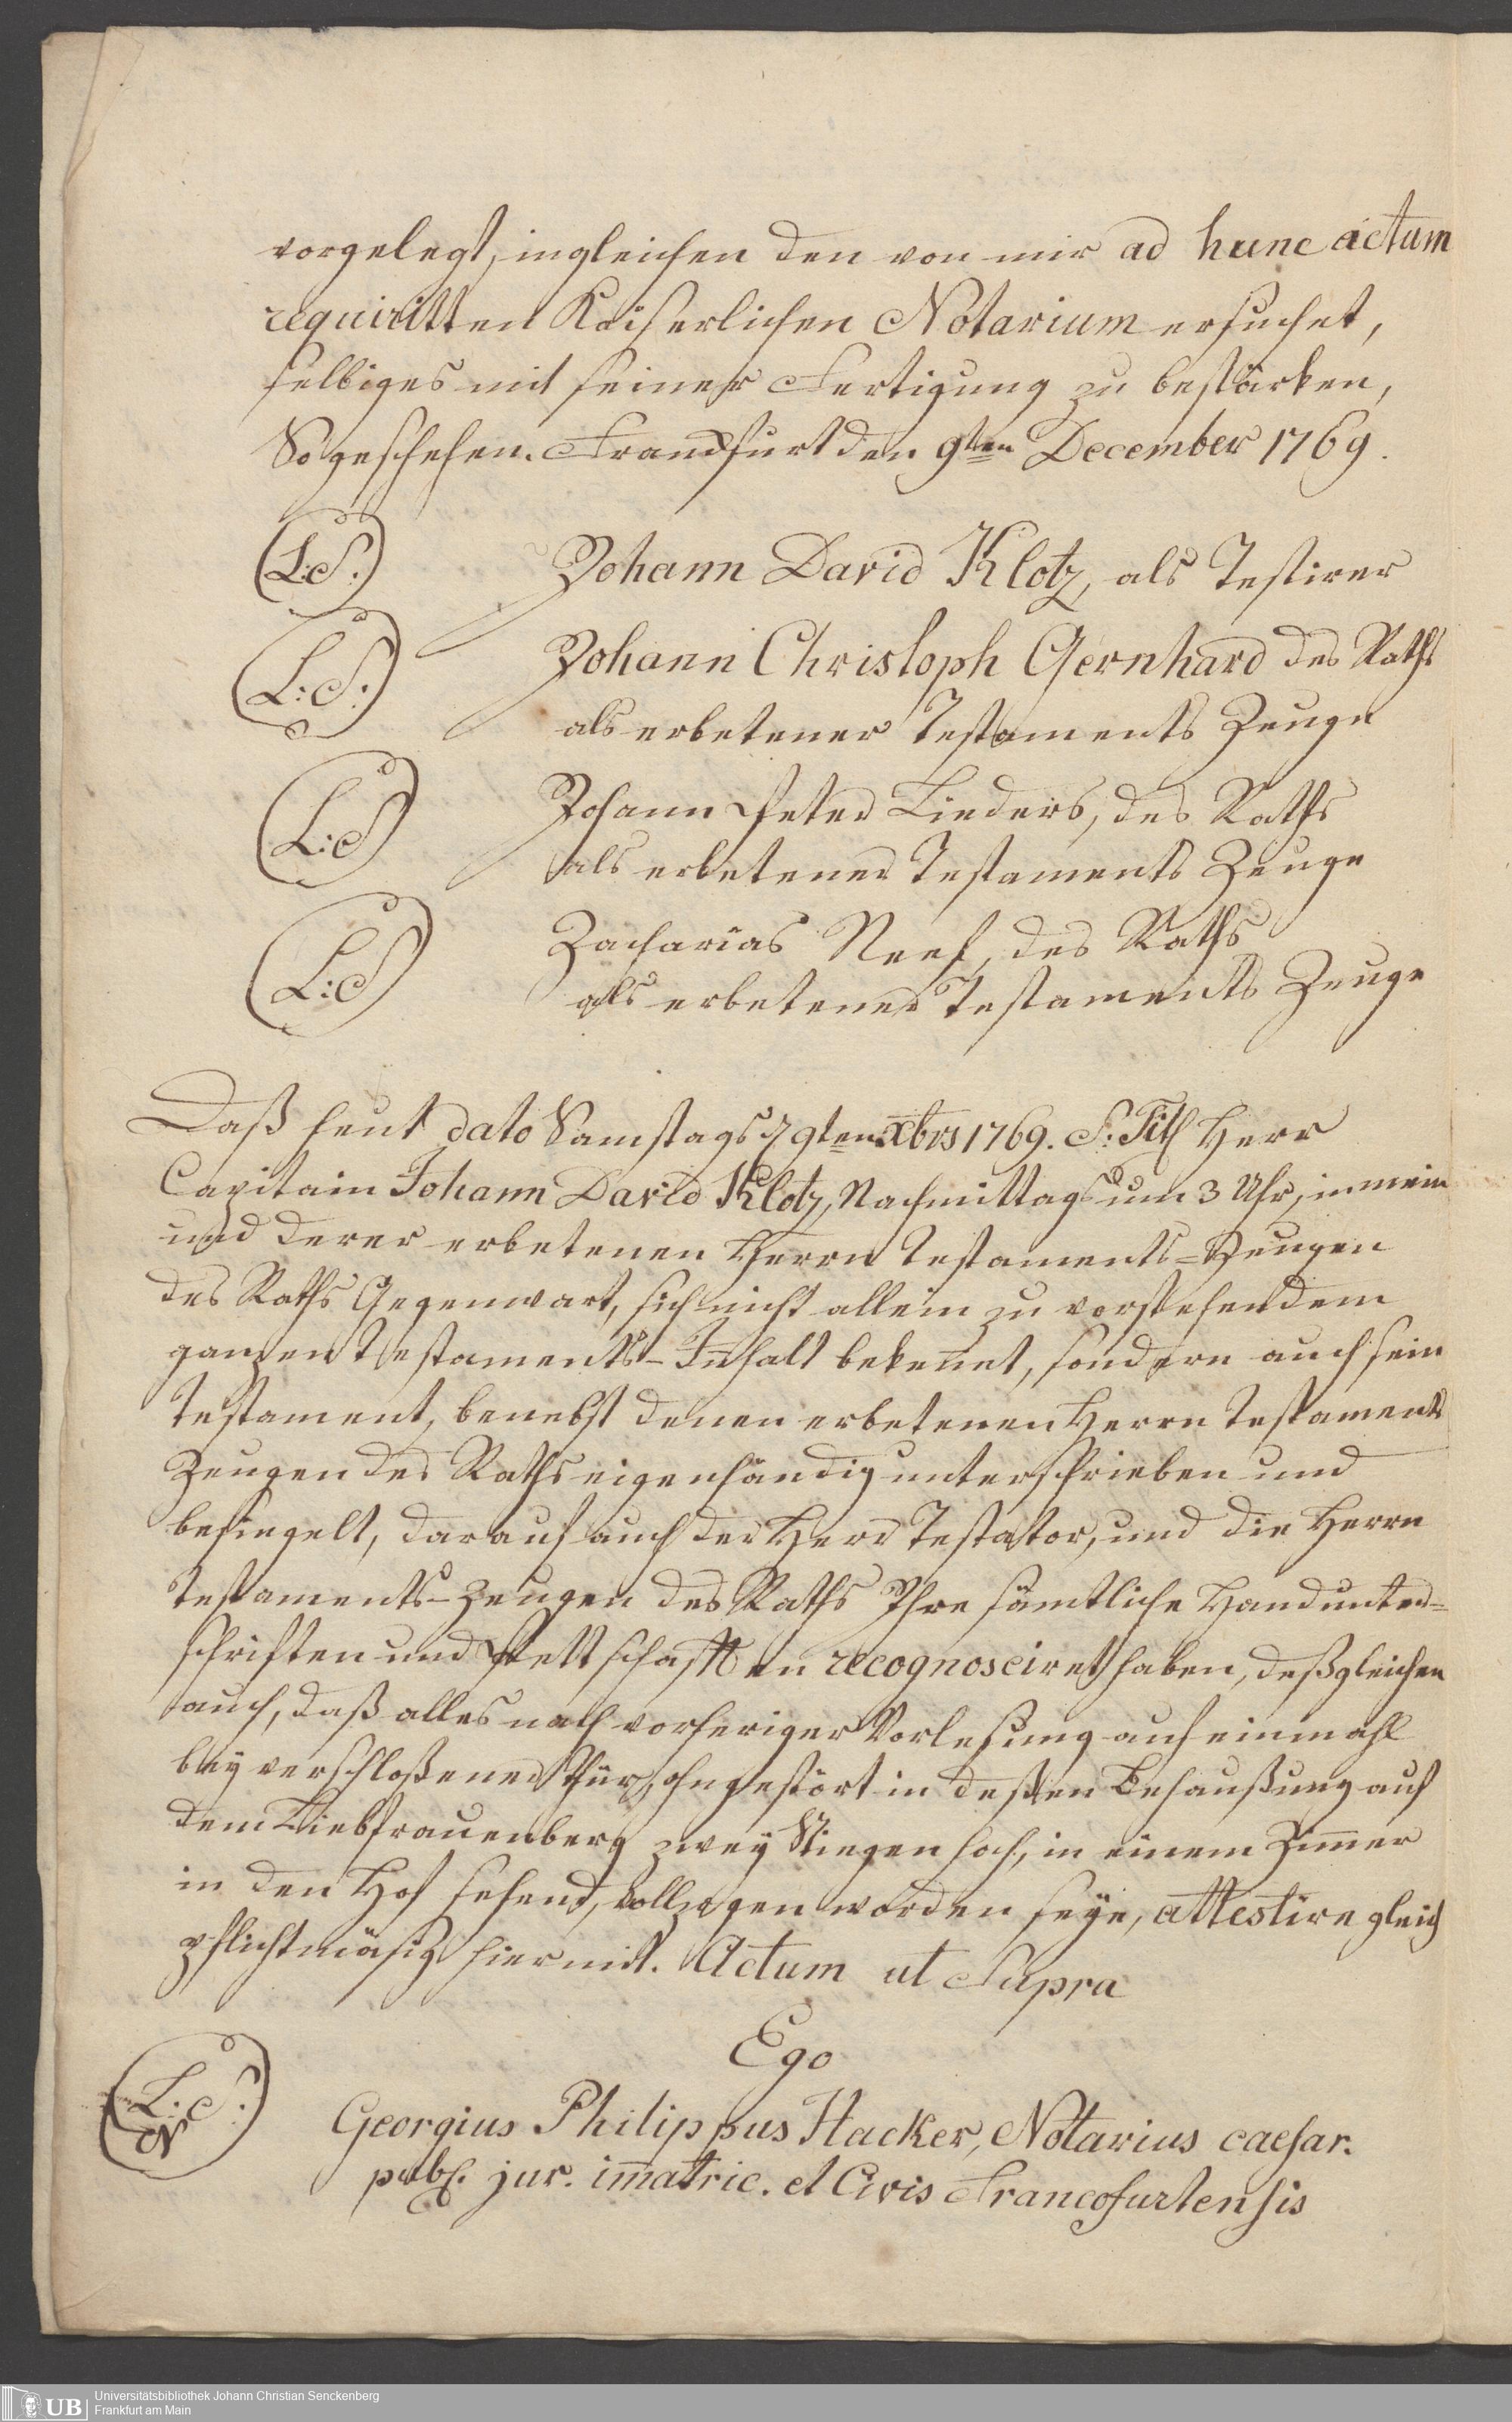 vorgelegt, ingleichen den von mir ad hunc actum
requiritten Kaiserlichen Notarium ersuchet,
selbiges mit seiner Fertigung zu bestärken,
So geschehen. Franckfurt den 9ten December 1769.
(L:S.) Johann David Klotz, als Testirer
(L:S:) Johann Christoph Gernhard des Raths
als erbetener Testaments Zeuge
(L:S) Johann Peter Lieders, des Raths
als erbetener Testaments Zeuge
(L:S) Zacharias Neef, des Raths
als erbetener Testaments Zeuge
Daß heut dato Samstags d 9ten Xbris 1769. S: Titl Herr
Capitain Johann David Klotz, Nachmittags um 3 Uhr, in mein
und derer erbetenen Herrn Testaments=Zeugen
des Raths Gegenwart, sich nicht allein zu vorstehendem
ganzen Testaments-Inhalt bekennet, sondern auch sein
Testament, benebst denen erbetenen Herrn Testaments
Zeugen des Raths eigenhändig unterschrieben und
besiegelt, darauf auch der Herr Testator, und die Herrn
Testaments-Zeugen des Raths Ihre sämtliche Handunter=
schriften und Pettschafften recognosciret haben, deßgleichen
auch, daß alles nach vorheriger Vorlesung auf einmahl
bey verschloßener Thür, ohngestört in deßen Behaußung auf
dem Liebfrauenberg zwey Stiegen hoch, in einem Zim̄er
in den Hof sehend, vollzogen worden seye, attestire gleich
pflichtmäsig hiermit. Actum ut Supra
Ego
(L:S:
N) Georgius Philippus Hacker, Notarius caesar.
publ. jur. im̄atric. et Civis Francofurtensis
UB Universitätsbibliothek Johann Christian Senckenberg
Frankfurt am Main